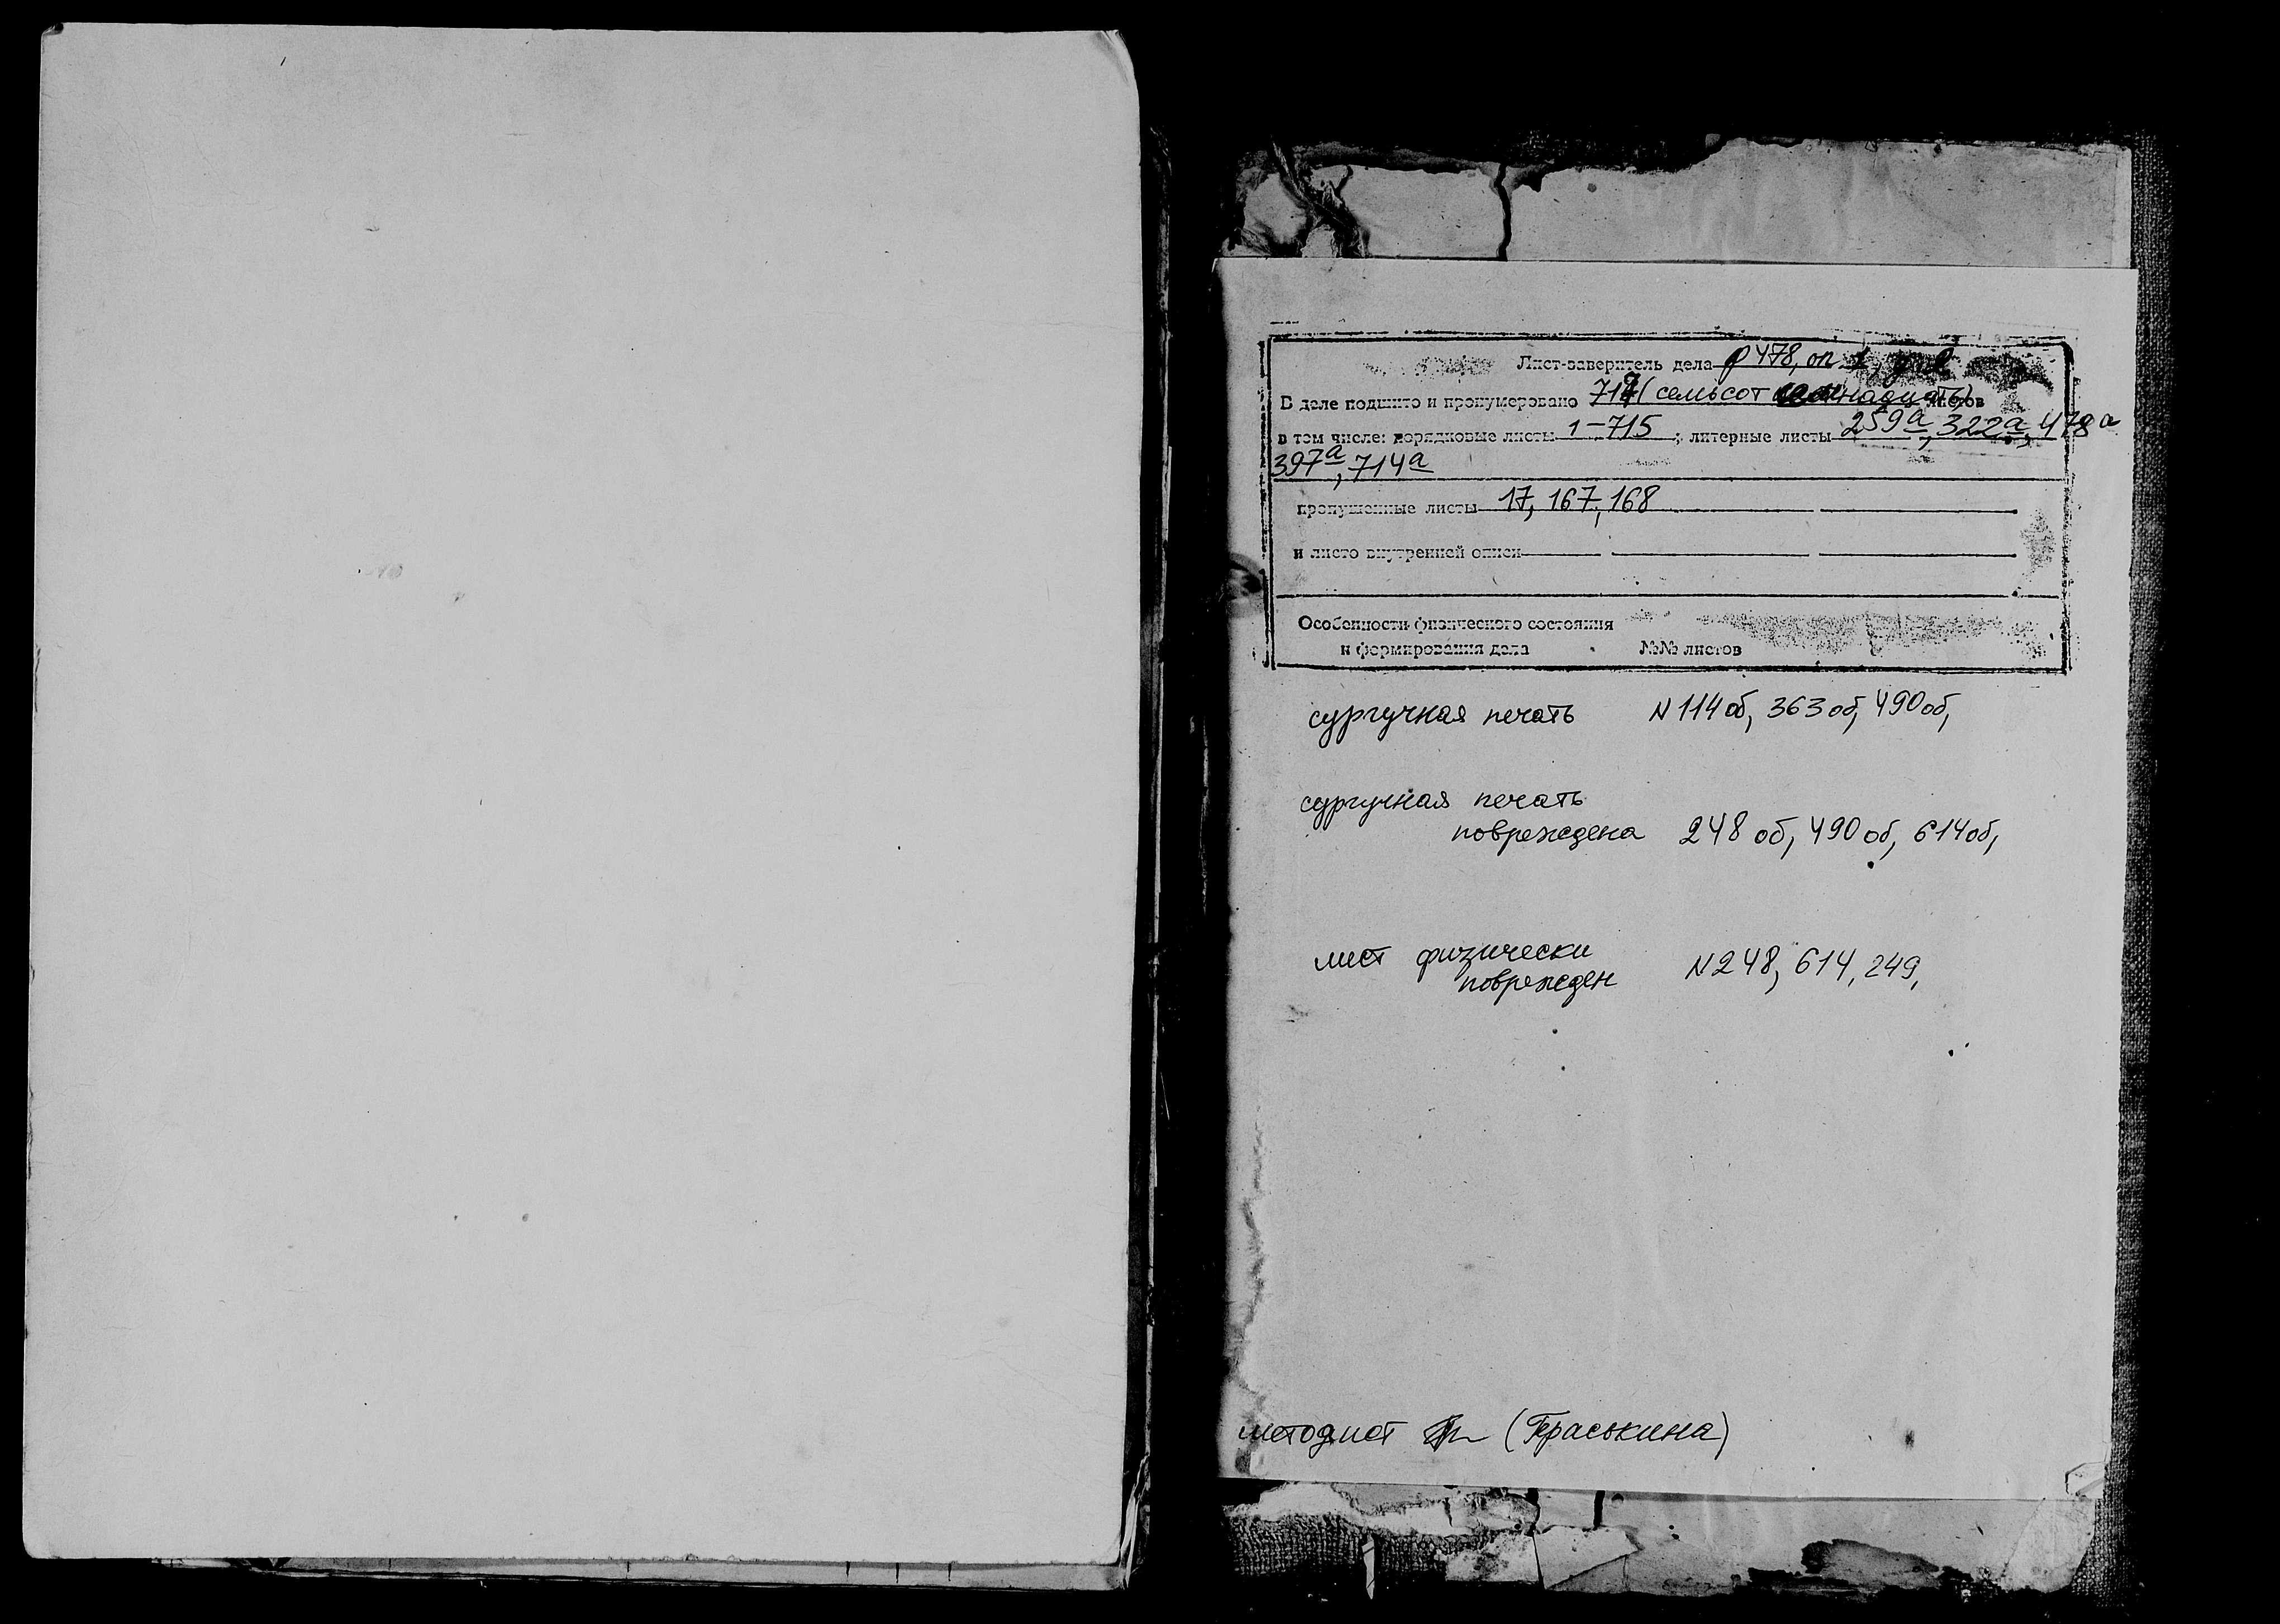 Лист-заверитель дела ф 478, оп 1
В деле подшито и пронумеровано 717 (семьсот семнадцать) листов
в том числе: порядковые листы 1-715; литерные листы 259а, 322а, 478а
397а, 714а
пропущенные листы 17, 167, 168
и листо внутренней описи
Особенности физического состояния
и формирования дела №№ листов
сургучная печать N 114 об, 363 об, 490 об,
сургучная печать
повреждена 248 об, 490 об, 614 об,
лист физически
поврежден N 248, 614, 249,
методист (Гераськина)